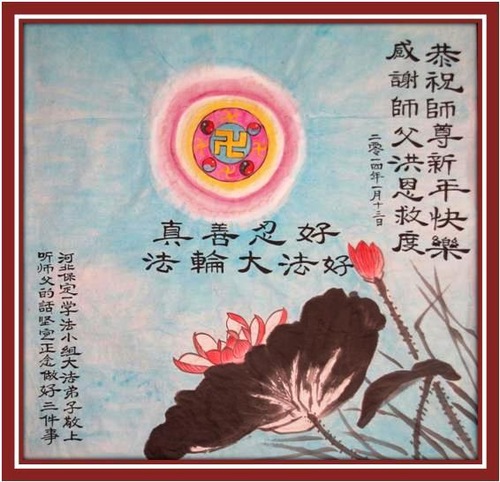 恭祝師尊新年快樂
感謝師父洪恩救度
二零一四年一月十三日
真善忍好
法輪大法好
河北保定一学法小组大法弟子敬上
听师父的話坚定正念做好三件事